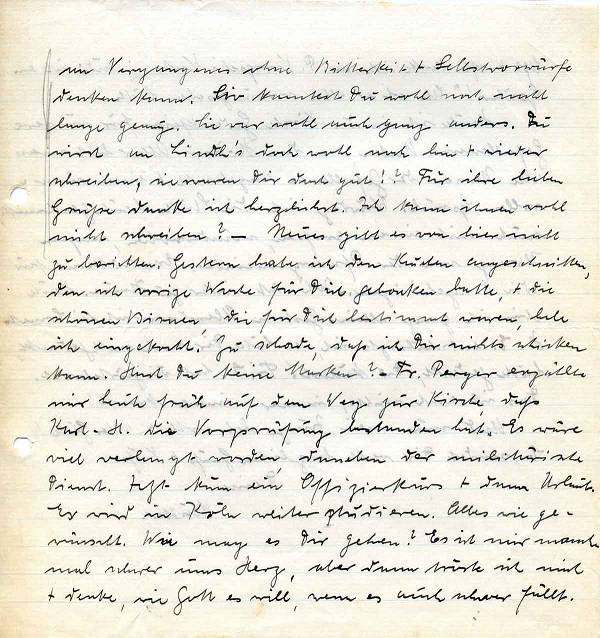 an Vergangenes ohne Bitterkeit + Selbstvorwürfe
denken kann. Liv kanntest Du wohl noch nicht
lange genug. Sie war wohl auch ganz anders. Du
wirst an Lindh's doch wohl noch hin + wieder
schreiben, sie waren Dir doch gut!? Für ihre lieben
Grüße danke ich herzlichst. Ich kann ihnen wohl
nicht schreiben? – Neues gibt es von hier nicht
zu berichten. Gestern habe ich den Kuchen angeschnitten,
den ich vorige Woche für Dich gebacken hatte, + die
schönen Birnen, die für Dich bestimmt waren, habe
ich eingekocht. Zu schade, daß ich Dir nichts schicken
kann. Hast Du keine Marken? – Fr. Perger erzählte
mir heute früh auf dem Weg zur Kirche, daß
Karl-H. die Vorprüfung bestanden hat. Es wäre
viel verlangt worden, daneben der militärische
Dienst. Jetzt käm ein Offizierkurs + dann Urlaub.
Er wird in Köln weiter studieren. Alles wie ge-
wünscht. Wie mag es Dir gehen? Es ist mir manch-
mal schwer ums Herz, aber dann tröste ich mich
+ denke, wie Gott es will, wenn es auch schwer fällt.